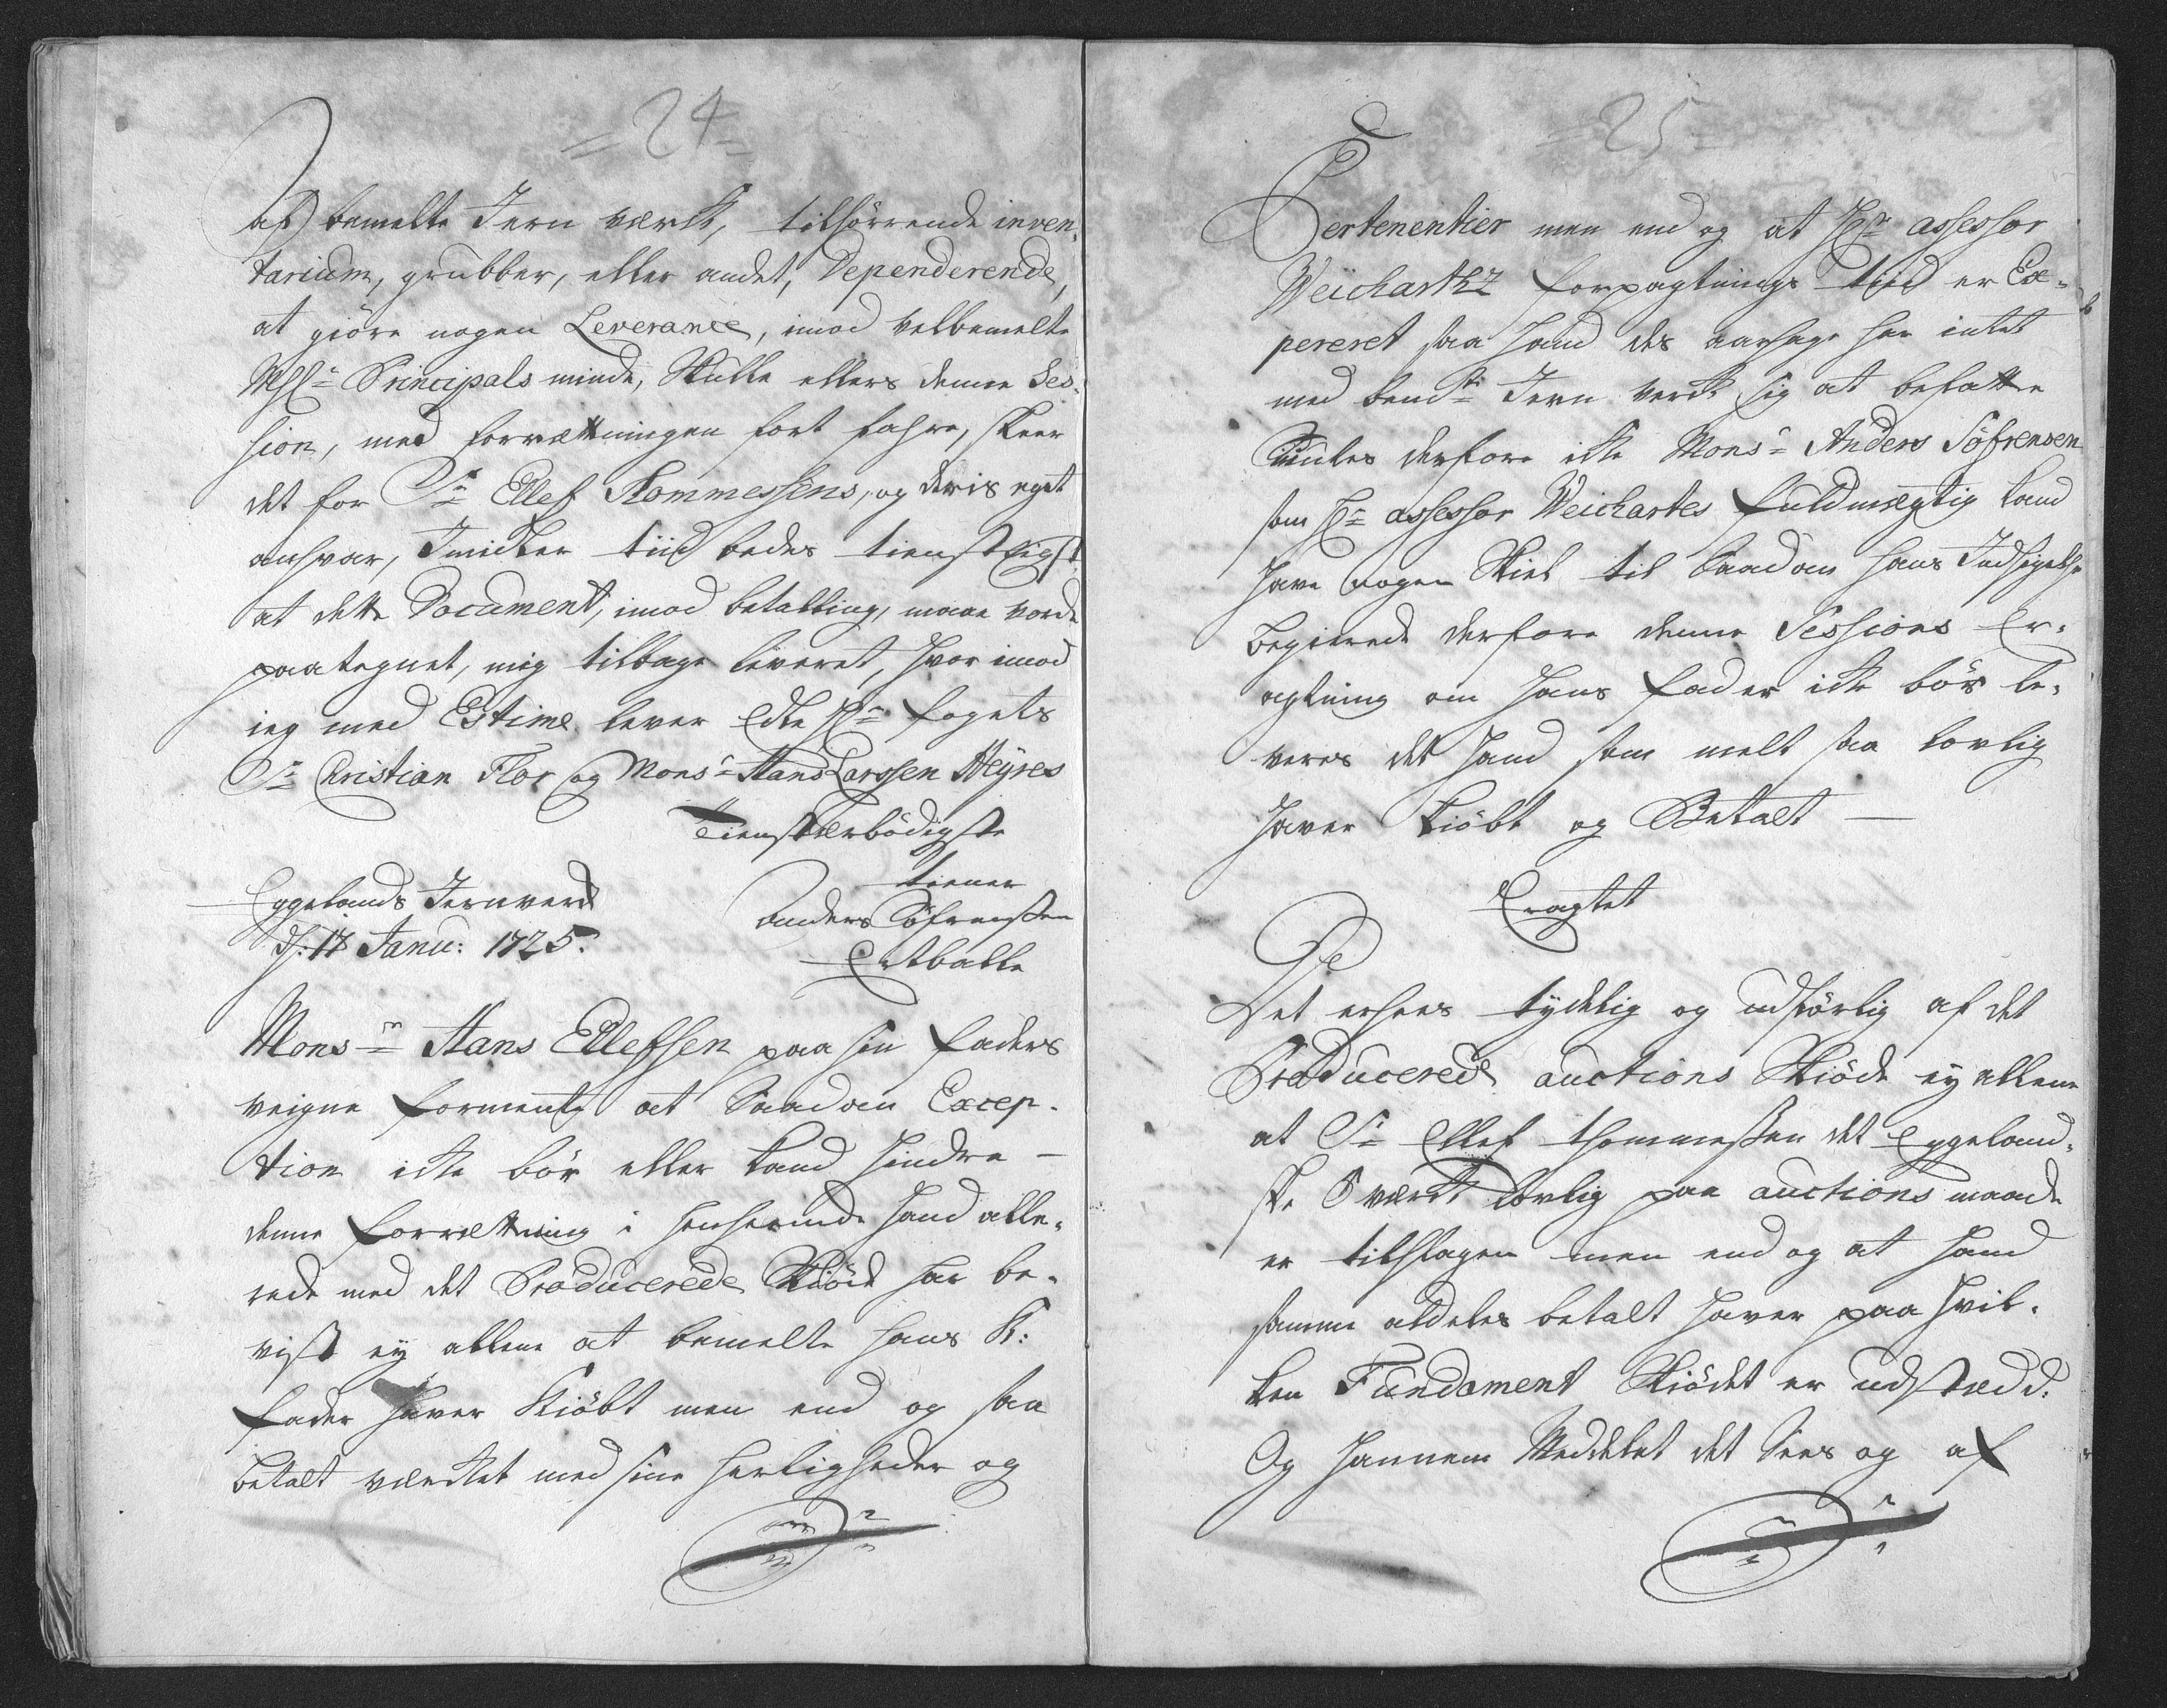 =24=
af bemelte Jern værck, tilhörrende inven-
tarium, grubber, eller andet, Dependerende,
at giöre nogen Leverance, imod velbemelte
Principals minde, Skulle ellers denne Ses-
sion, med forrættningen fort fahre, skeer
det for Sr Ellef Tommessens, og deris eget
ansvar, Imidler tiid bedes tienstligst
at dette Document, imod betalling, maae vorde
paategnet, mig tilbage leveret, hvor imod
ieg med Estime lever Edle Hr fogets
Sr Christian Flor og Monsr Hans Larssen Heÿres
Tienstærbödigste
tiener
Eggelands Jernverck
Anders Söfrensen
d. 17 Janu: 1725.
Monsr Hans Ellefsen paa sin faders
veigne formente at Saadan Excep-
tion icke bör eller kand hindre
denne forrættning i henseende hand alle-
rede med det Producerede Skiöde har be-
vist eÿ allene at bemelte hans K:
fader haver Kiöbt men end og saa
betalt værcket med sine herligheder og
=25=
Pertenentier men end og at Hr assessor
Weichartz forpagtnings tiid er Ex-
pereret saa hand des aarsage har intet
med bemte Jern verck sig at befatte
Kunde derfore icke Monsr Anders Söfrensen
som Hr assessor Weichartes fuldmægtig kand
have nogen Skiel til Saadan hans Indsigelse
begierede derfore denne Sessions Er-
agtning om hans fader icke bör le-
veres det hand som melt saa lovlig
haver kiöbt og Betalt
Eragtet
Det ersees tydelig og udförlig af det
Producerede auctions Skiöde eÿ allene
at Sr Ellef Thommessen det Eggeland-
ske værck lovlig paa auctions maade
er tilslagen men end og at hand
samme aldeles betalt haver paa hvil-
ken Fundament Skiödet er udstædd:
Og hannem Meddelet det Sees og af